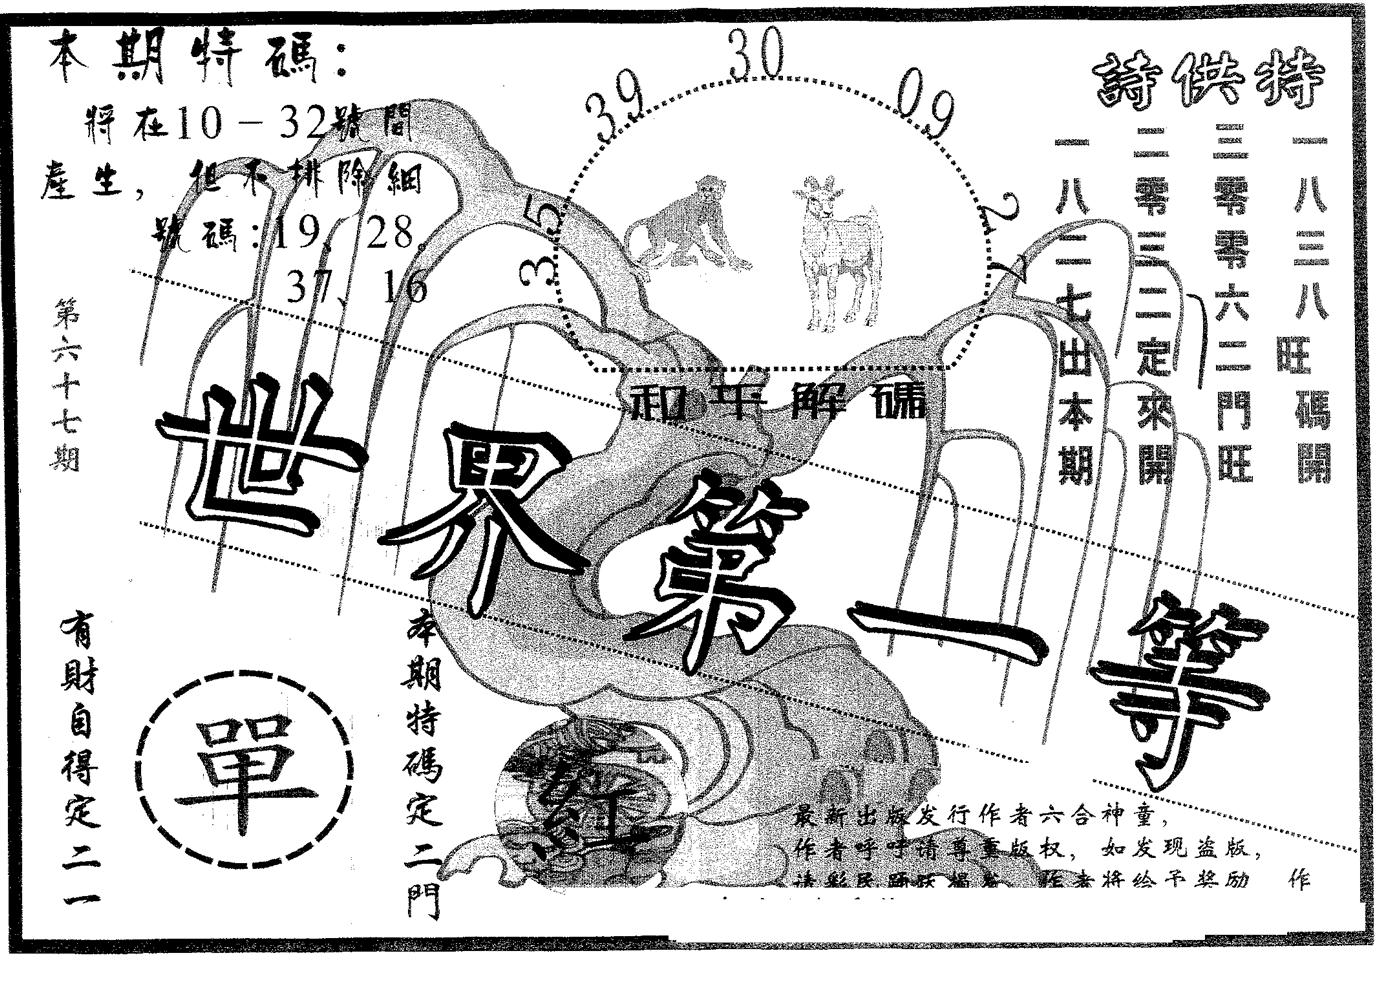 本期特碼:
將在10－32號間
產生，但不排除細
號碼:19、28。
37、16
第六十七期
39
30
09
35
27
和平解碼
詩供特
一八三八旺碼開
三零零六二門旺
二零三二定來開
一八二七出本期
世界第一等
有財自得定二一
單
本期特碼定二門
紅
最新出版发行作者六合神童，
作者呼吁请尊重版权，如发现盗版，
请彩民踊跃揭发 作者将给予奖励 作